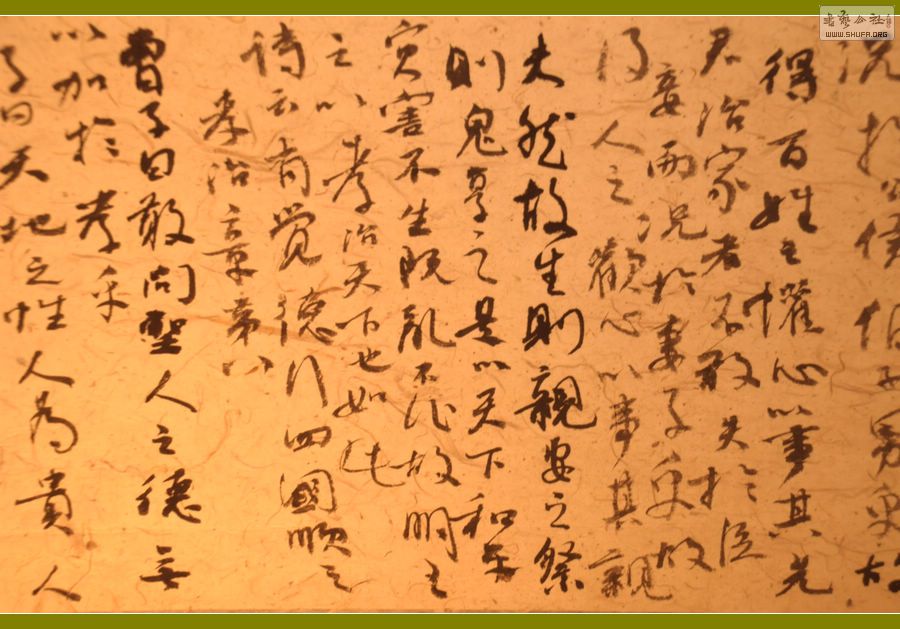 況於公侯伯子男乎故
得百姓之懽心以事其先
君治家者不敢失於臣
妾而況於妻子乎故
得人之歡心以事其親
夫然故生則親安之祭
則鬼享之是以天下和平
災害不生既亂不作故明王
之以孝治天下也如此
詩云有覺德行四國順之
孝治章第八
曾子曰敢問聖人之德無
以加於孝乎
子曰天地之性人為貴人
書藝公社
WWW.SHUFA.ORG